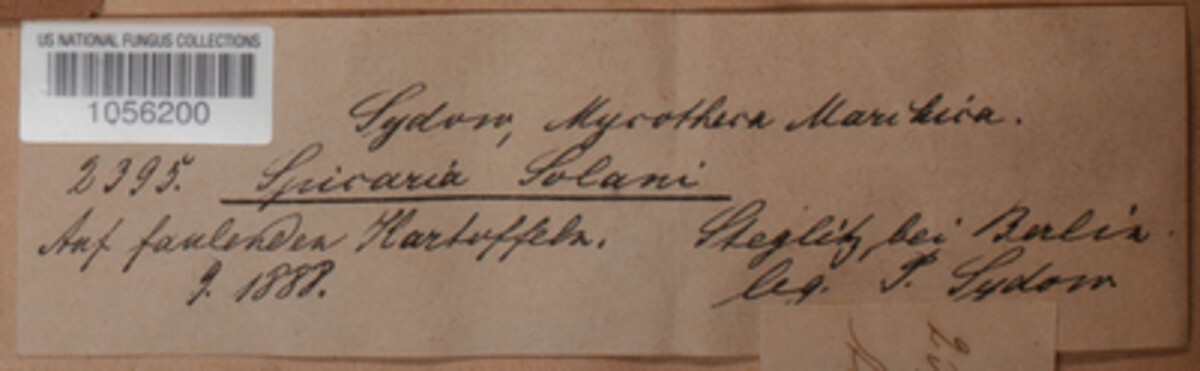 US NATIONAL FUNGUS COLLECTIONS
1056200
Sydow, Mycotheca Marchica.
2395. Spicaria Solani
Auf faulenden Kartoffeln. Steglitz bei Berlin.
9. 1888. leg. P. Sydow